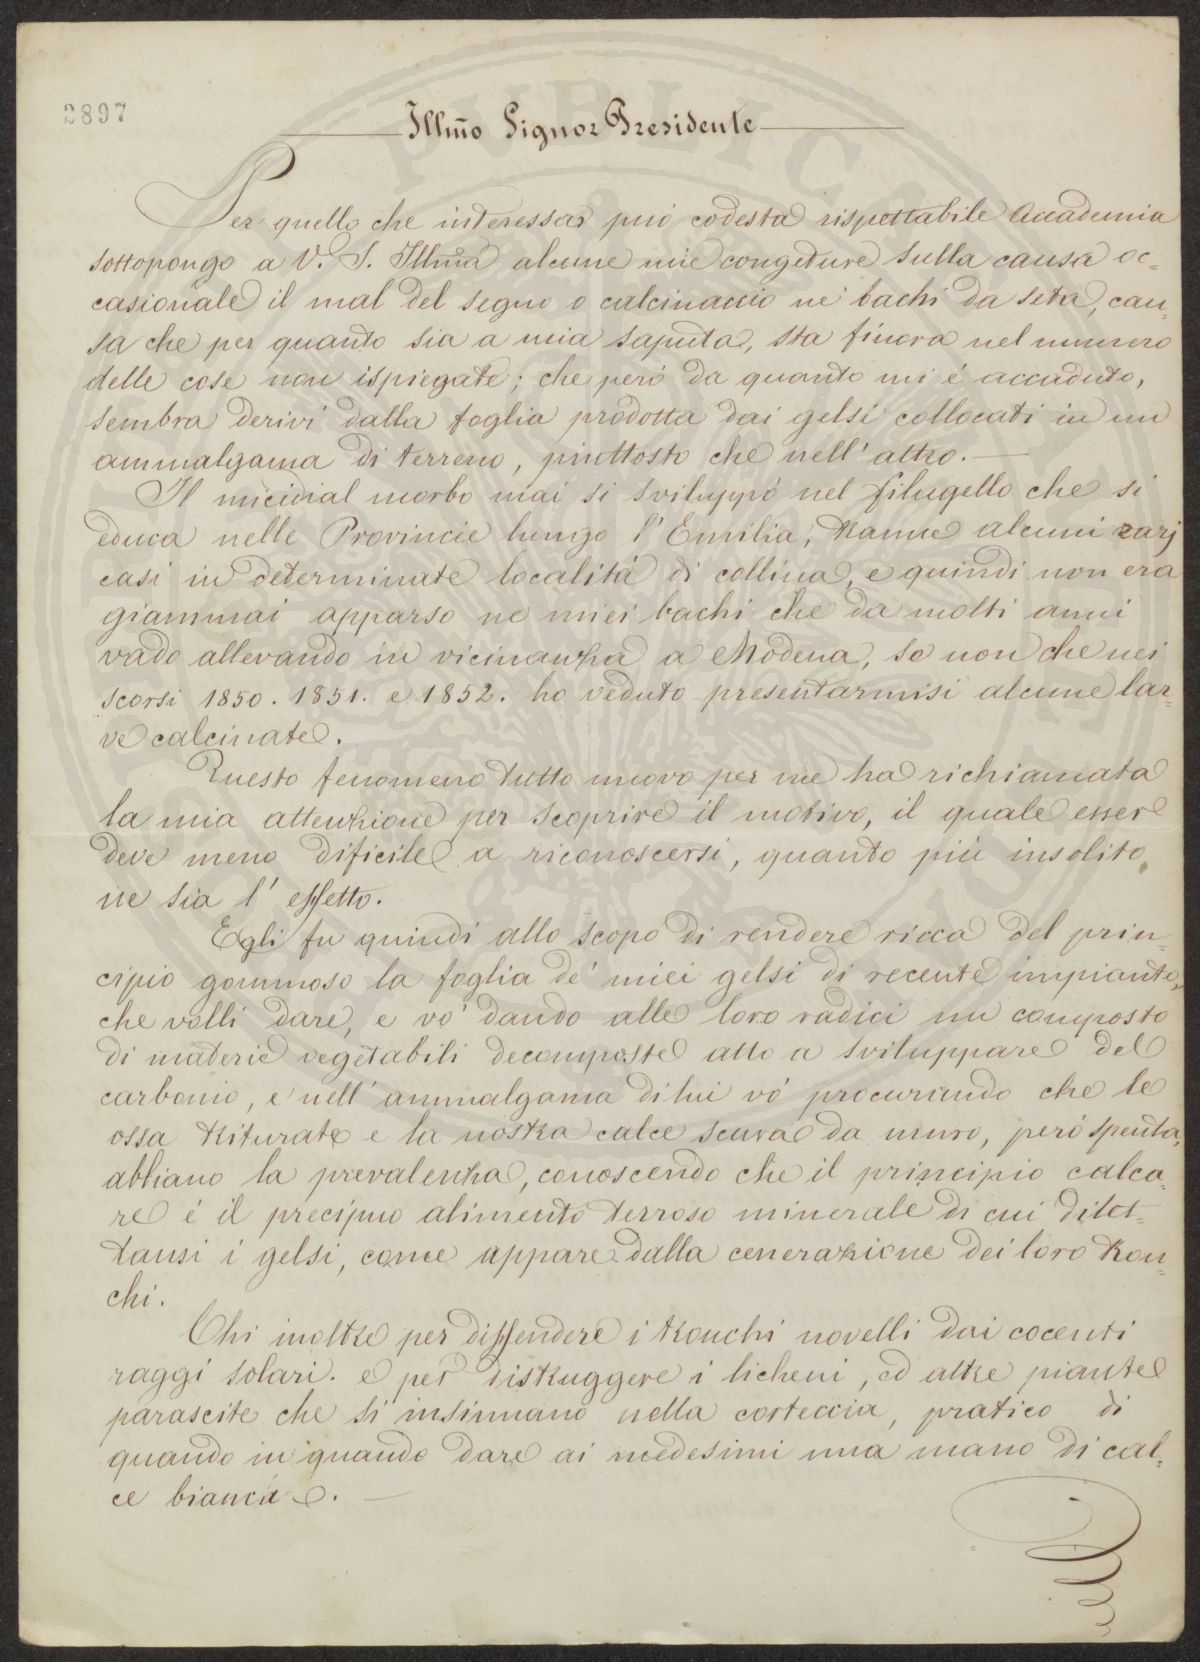 2897
Illm̃o Signor Presidente
Per quello che interessar può codesta rispettabile Accademia
sottopongo a V. S. Illm̃a alcune mie congetture sulla causa oc=
casionale il mal del segno o calcinaccio ne' bachi da seta, cau=
sa che per quanto sia a mia saputa, sta finora nel numero
delle cose non ispiegate; che peró da quanto mi é accaduto,
sembra derivi dalla foglia prodotta dai gelsi collocati in un
ammalgama di terreno, piuttosto che nell' altro. —
Il micidial morbo mai si sviluppó nel filugello che si
educa nelle Provincie lungo l' Emilia, tranne alcuni rarj
casi in determinate localitá di collina, e quindi non era
giammai apparso ne miei bachi che da molti anni
vado allevando in vicinanza a Modena, se non che nei
scorsi 1850. 1851. e 1852. ho veduto presentarmisi alcune lar=
ve calcinate.
Questo fenomeno tutto nuovo per me ha richiamata
la mia attenzione per scoprire il motivo, il quale esser
deve meno dificile a riconoscersi, quanto piú insolito
ne sia l' effetto.
Egli fu quindi allo scopo di rendere ricca del prin=
cipio gommoso la foglia de' miei gelsi di recente impianto,
che volli dare, e vo' dando alle loro radici un composto
di materie vegetabili decomposte atto a sviluppare del
carbonio, e nell' ammalgama di lui vó procurando che le
ossa triturate e la nostra calce scura da muro, peró spenta,
abbiano la prevalenza, conoscendo che il principio calca=
re é il precipuo alimento terroso minerale di cui dilet=
tansi i gelsi, come appare dalla cenerazione dei loro tron=
chi.
Chi inoltre per diffendere i tronchi novelli dai cocenti
raggi solari. e per distruggere i licheni, ed altre piante
parascite che si insinuano nella corteccia, pratico di
quando in quando dare ai medesimi una mano di cal=
ce bianca. —